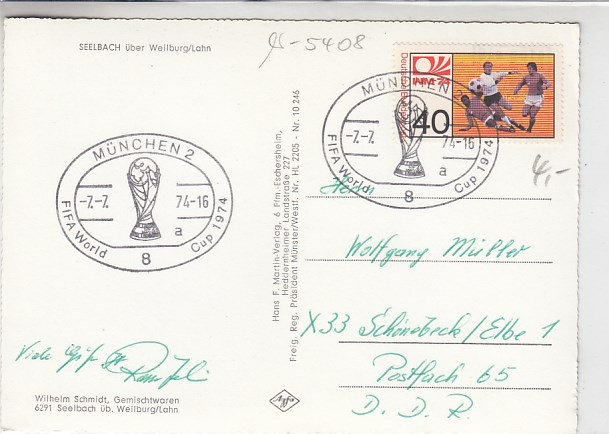 SEELBACH über Weilburg/Lahn
5408
Deutsche
WM 74
40
MÜNCHEN 2
-7.-7. 74-16
a
FIFA World Cup 1974
8
MÜNCHEN 2
-7.-7. 74-16
a
FIFA World Cup 1974
8
4,-
Hans F. Martin-Verlag, 6 Ffm.-Eschersheim,
Heddernheimer Landstraße 227
Freig. Reg. Präsident Münster/Westf. Nr. HL 2205 - Nr. 10 246
Herrn
Wolfgang Müller
X33 Schönebeck/Elbe 1
Postfach 65
D. D. R.
Viele
Wilhelm Schmidt, Gemischtwaren
6291 Seelbach üb. Weilburg/Lahn
Agfa